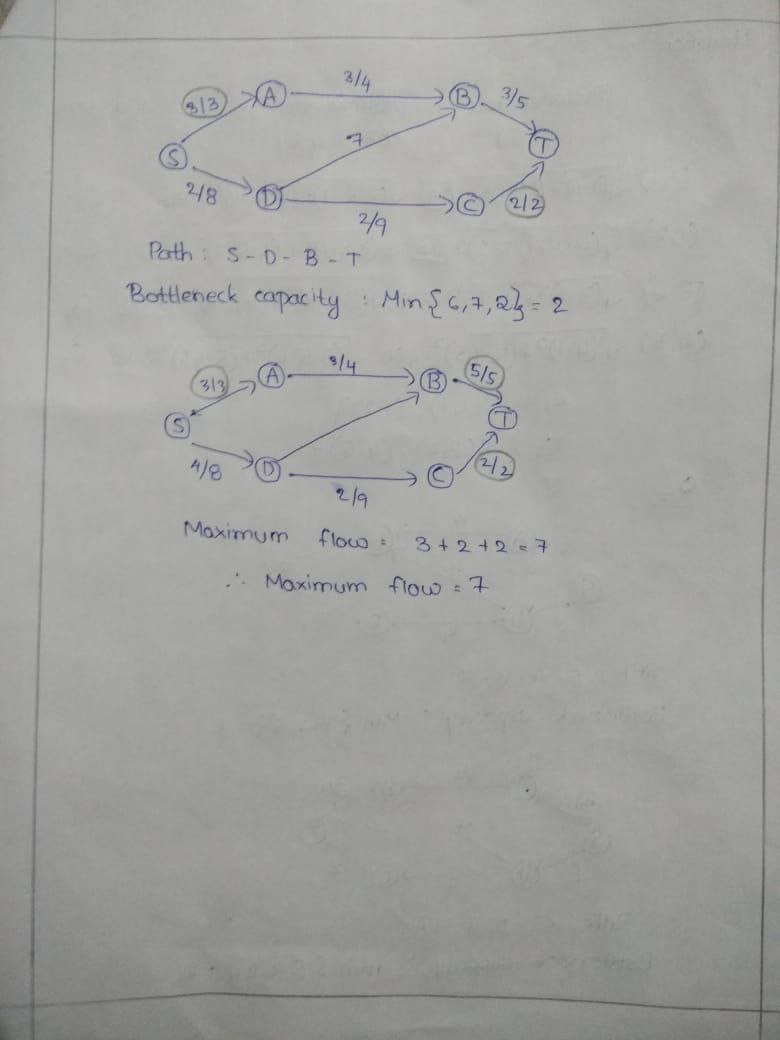 3/4
3/3 A B 3/5
S 7 T
2/8 D 2/9 C 2/2
Path : S - D - B - T
Bottleneck capacity : Min {6, 7, 2} = 2
3/4
3/3 A B 5/5
S T
4/8 D 2/9 C 2/2
Maximum flow = 3 + 2 + 2 = 7
∴ Maximum flow = 7